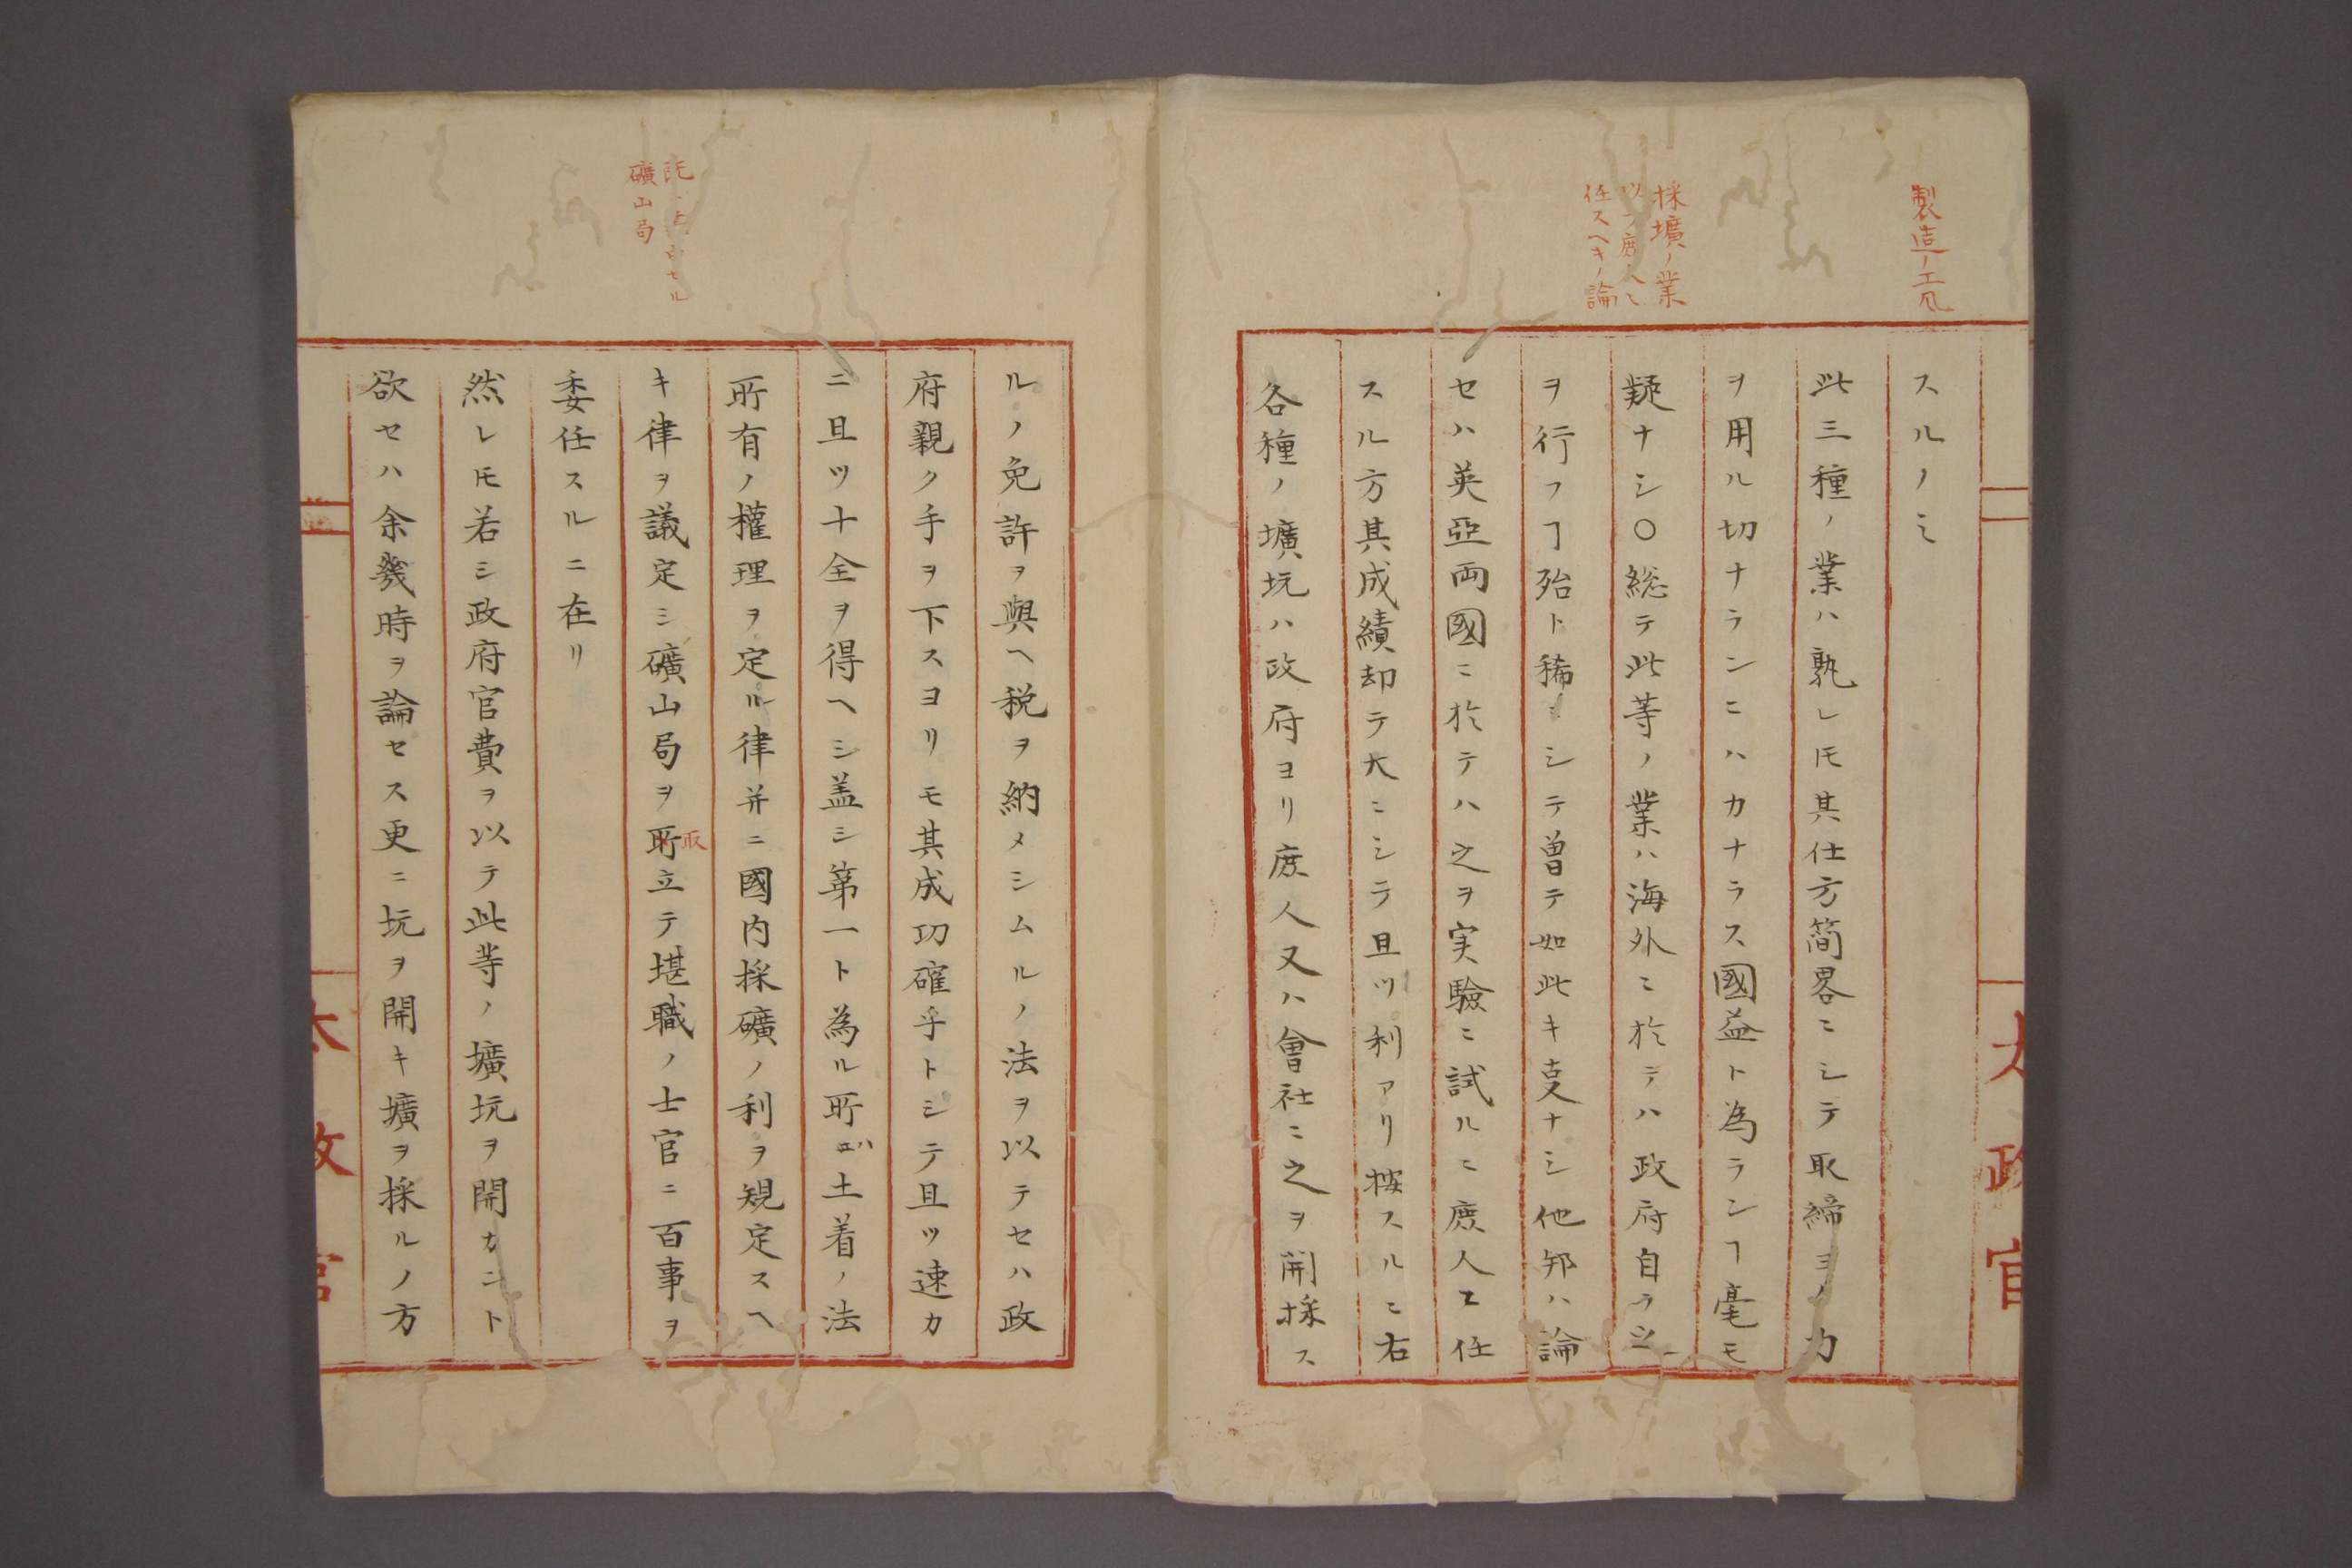 製造ノ工風
採壙ノ業
以テ庶人ニ
任スヘキノ論
スルノミ
此三種ノ業ハ孰レ𪜈其仕方簡畧ニシテ取締ヨノ力
ヲ用ル切ナランニハカナラス國益ト為ランヿ毫モ
疑ナシ〇総テ此等ノ業ハ海外ニ於テハ政府自ラ之
ヲ行フヿ殆ト稀ニシテ曽テ如此キ叓ナシ他邦ハ論
セハ英亞両國ニ於テハ之ヲ実驗ニ試ルニ庶人エ任
スル方其成績却テ大ニシテ且ツ利アリ按スルニ右
各種ノ壙坑ハ政府ヨリ庶人又ハ會社ニ之ヲ開採ス
太政官
礦山局
ルノ免許ヲ與ヘ税ヲ納メシムルノ法ヲ以テセハ政
府親ク手ヲ下スヨリモ其成功確乎トシテ且ツ速カ
ニ且ツ十全ヲ得ヘシ盖シ第一ト為ル所ハ土着ノ法
所有ノ權理ヲ定ル律并ニ國内採礦ノ利ヲ規定スヘ
キ律ヲ議定シ礦山局ヲ所立テ堪職ノ士官ニ百事ヲ
取
委任スルニ在リ
然レ𪜈若シ政府官費ヲ以テ此等ノ壙坑ヲ開カント
欲セハ余幾時ヲ論セス更ニ坑ヲ開キ壙ヲ採ルノ方
太政官